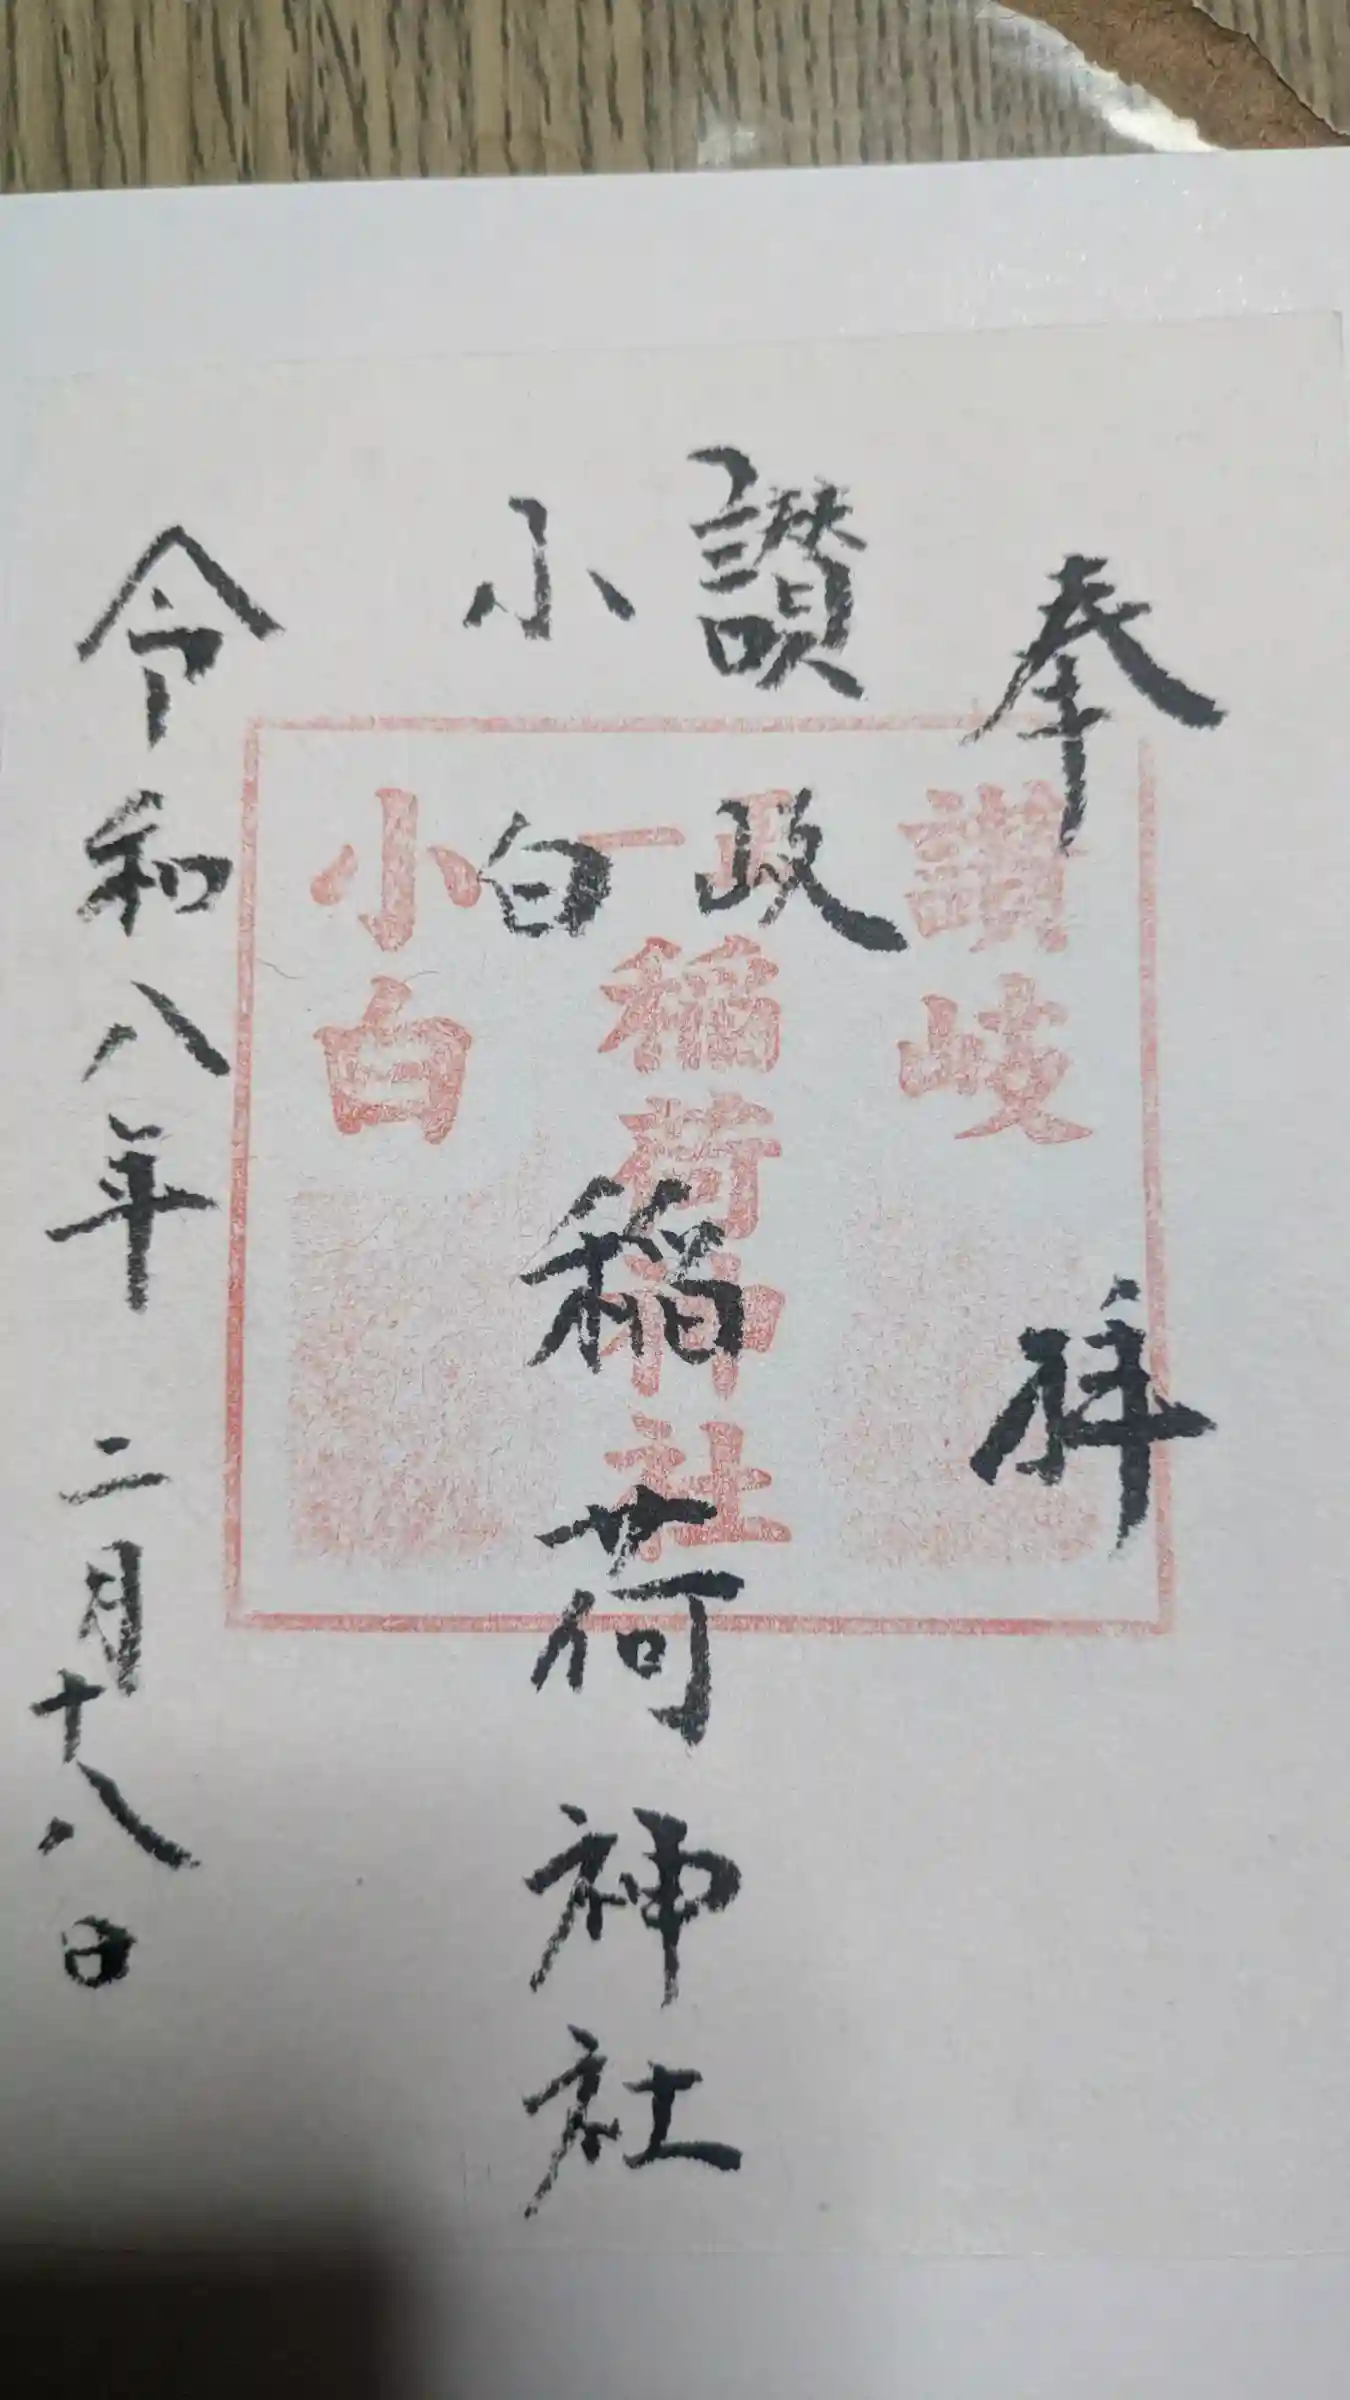 奉拝
讃岐
小白
稲荷神社
令和八年 二月十八日
讃岐
正一
稲荷神社
小白